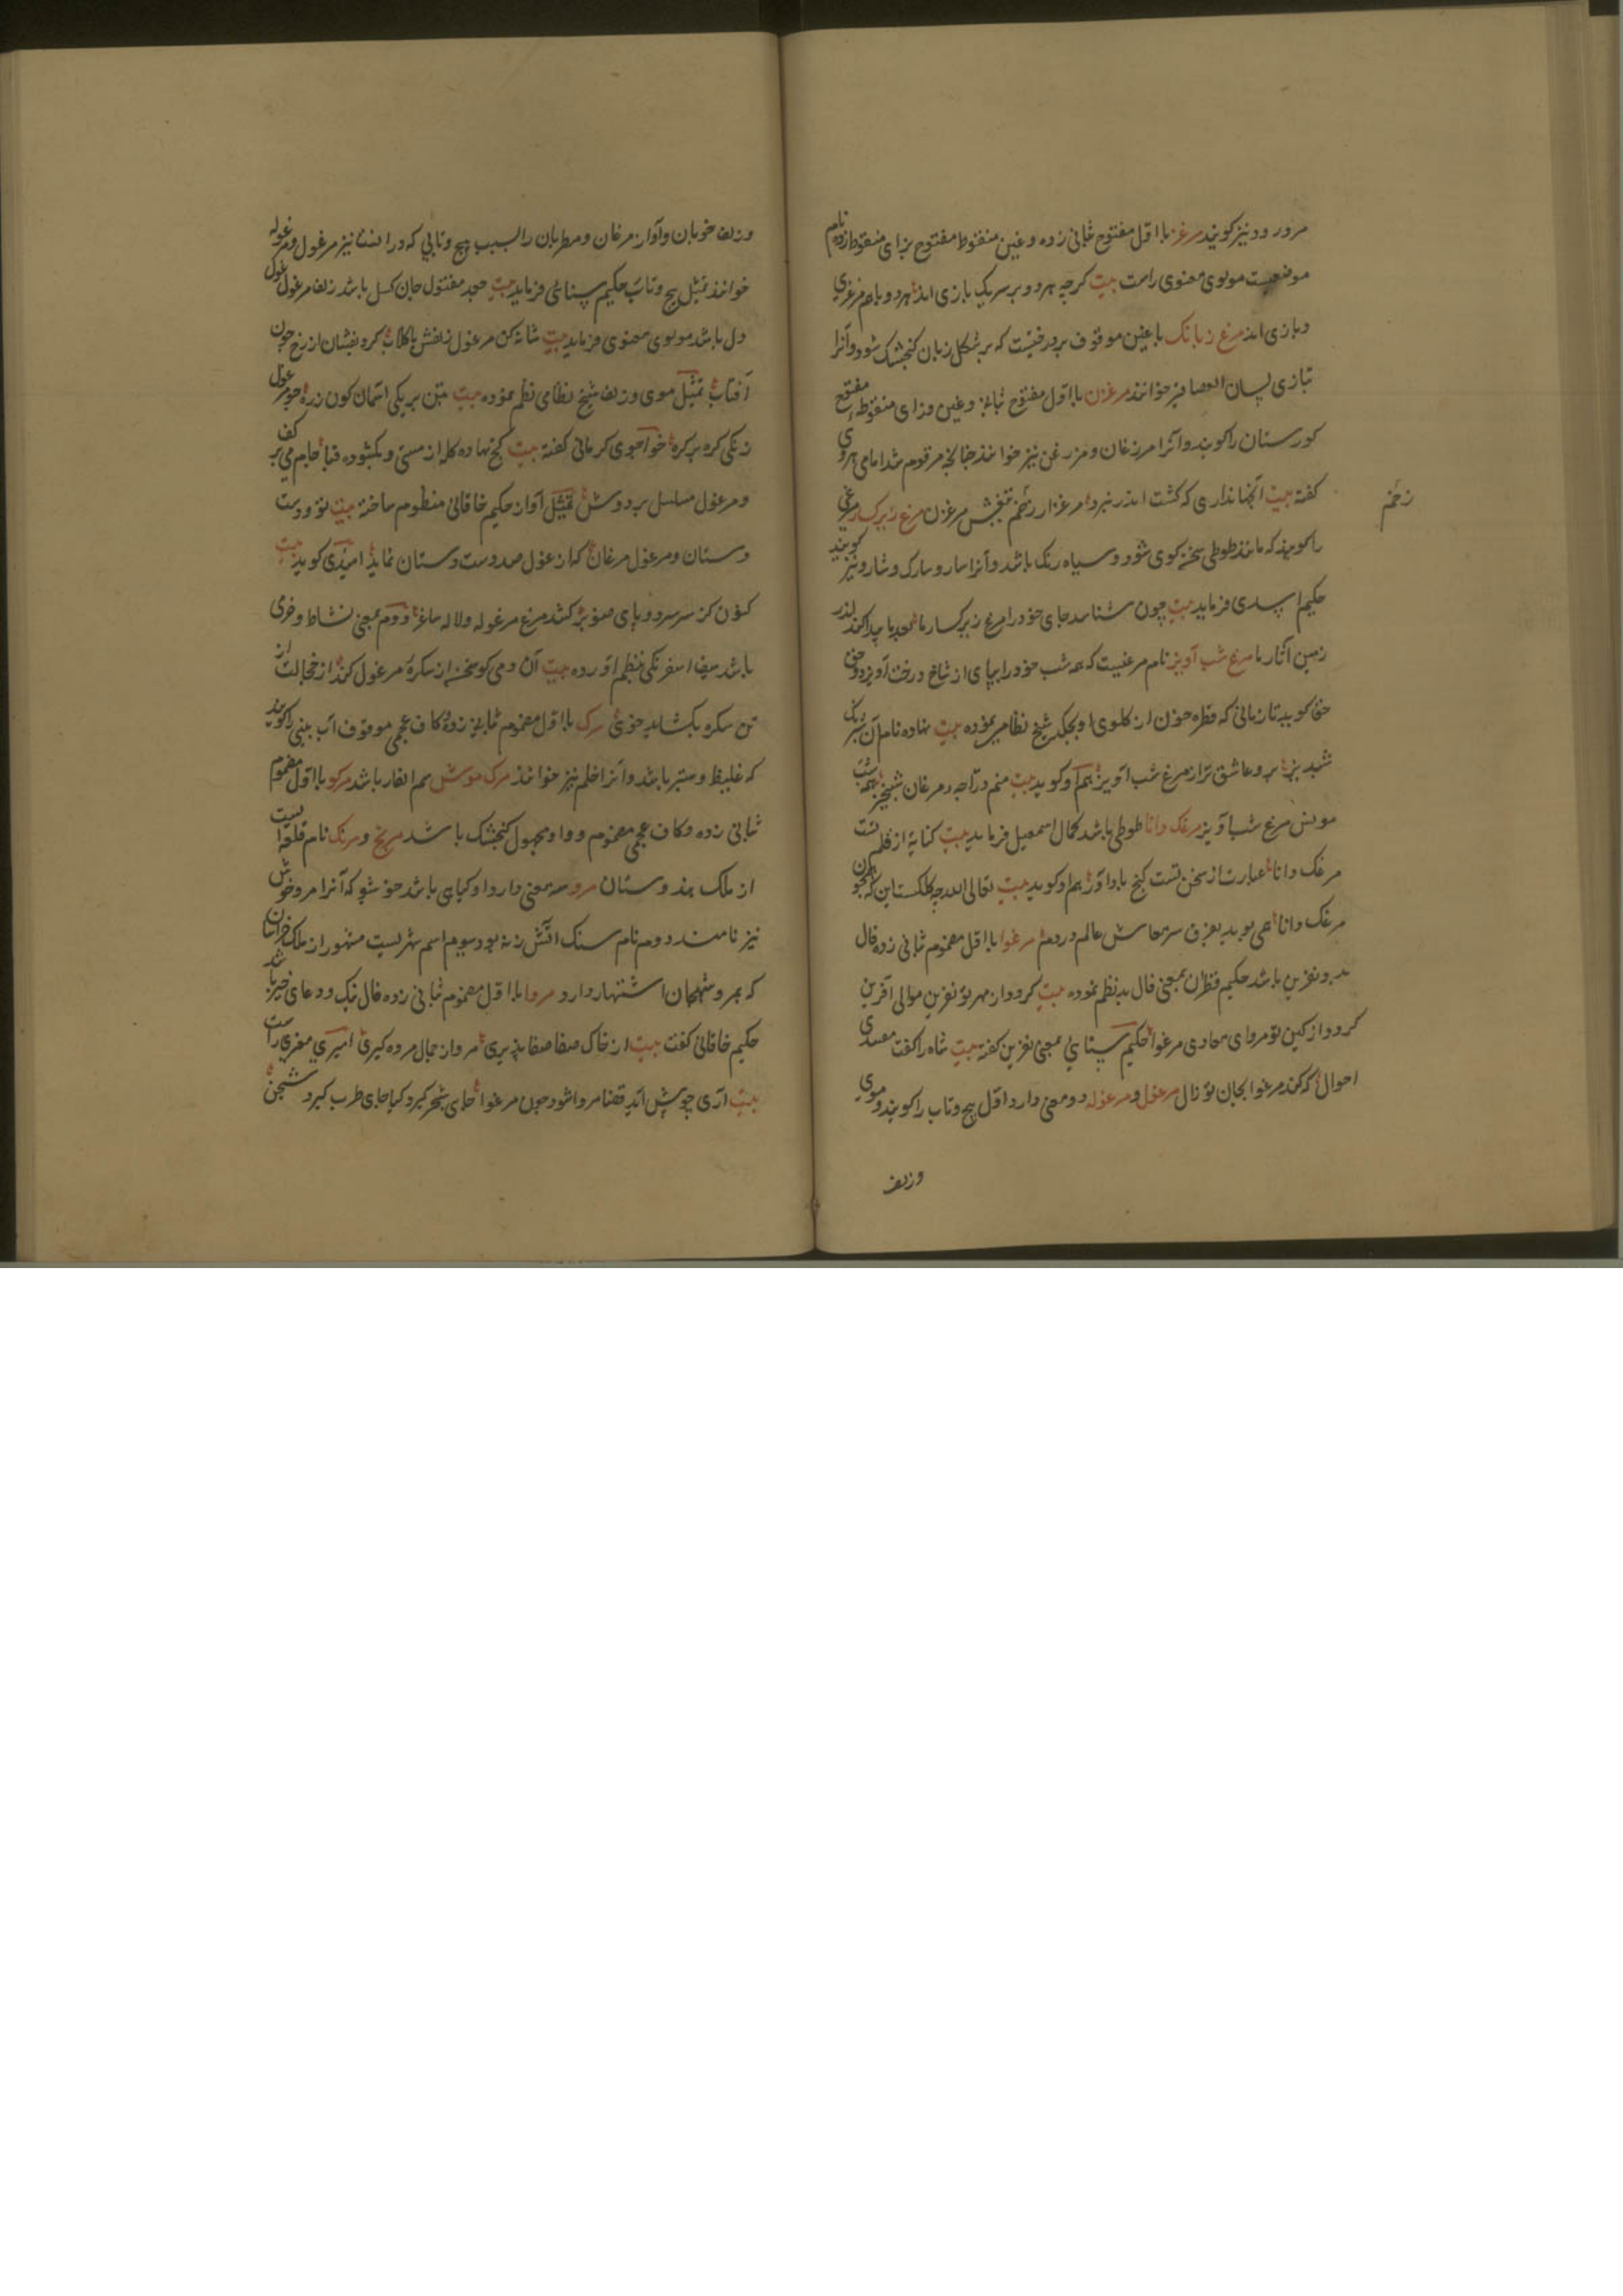 مرو رود نیز کویند مرغز با اول مفتوح بثانی زده و غین منقوط مفتوح بزای منقوطه زده نام
موضعیست مولوی معنوی راست بیت کرچه هر دو بر سر یک بازی اند هر دو با هم مرغزی
و بازی اند مرغ زبانک با غین موقوف بر درختیست که بر شکل زبان کنجشک شود و آنرا
بتازی لسان العصافیر خوانند مرغزن با اول مفتوح بثانی و غین و زای منقوطه مفتوح
کورستان را کویند و آنرا مرزغان و مرزغن نیز خوانند چنانچه مرقوم شد امامی هروی
کفته بیت هر غزن مرغ زیرک سار مرغی
زخم
را کویند که مانند طوطی سخن کوی شود و سیاه رنک باشد و آنرا سار و سارک و شارو نیز کویند
حکیم اسدی فرماید بیت چون شناسد جای خود را مرغ زیرک سار ما
زمین آثار ما مرغ شب آویز نام مرغیست که همه شب خود را بپای از شاخ درخت آویزد و حق
حق کوید تا زمانی که قطره خون از کلوی او بچکد شیخ نظامی نموده بیت نهاده نام آن شبرنک
شبدیز بر و عاشق تر از مرغ شب آویز هم او کوید بیت منم دراجه مرغان شبخیز همه شب
مونس مرغ شب آویز مرغک دانا طوطی باشد کمال اسمعیل فرماید بیت کنایة از قلم تست
مرغک دانا عبارت از سخن تست کنج باد آور هم او کوید بیت تعالی الله چه کلکست این که همچون
مرغک دانا همی بوید بفرق سر معاش عالم و روم مرغوا با اول مضموم بثانی زده فال
بد و نفرین باشد حکیم قطران بمعنی فال بد نظم نموده بیت کردد از مهر تو نفرین موالی آفرین
کردد از کین تو مروای معادی مرغوا حکیم سنایی بمعنی نفرین کفته بیت شاه را کفت
احوال که کند مرغوا بجان تو زال مرغول و مرغوله دو معنی دارد اول پیچ و تاب را کویند و موی
و زلف
و زلف خوبان و آواز مرغان و مطربان را بسبب پیچ و تابی که در آنست نیز مرغول و مرغوله
خوانند تمثیل پیچ و تاب حکیم سنائی فرماید بیت جعد مفتول جان کسل باشد زلف مرغول غول
دل باشد مولوی معنوی فرماید بیت شانه کن مرغول زلفش با کلاب کرد بفشان از رخ چون
آفتاب تمثیل موی و زلف شیخ نظامی نظم نموده بیت آسمان کون زره چو مرغول
زنکی کره بر کره خواجوی کرمانی کفته بیت کج نهاده کله از مستی و بکشوده قبا جام می بر کف
و مرغول مسلسل بر دوش تمثیل آواز حکیم خاقانی منظوم ساخته بیت تو و دست
دستان و مرغول مرغان که از غول صد دست دستان نماید امیدی کوید بیت
کنون کز سر سرو و پای صنوبر کشد مرغ مرغوله و لاله ساغر دوم بمعنی نشاط و خرمی
باشد سیف اسفرنکی بنظم آورده بیت آن دمی کو سخن از سکره مرغول کند از خجالت از
تن سکره بکشاید خوی مرک با اول مضموم بثانی زده و کاف عجمی موقوف آب بینی را کویند
که غلیظ و ستبر باشد و آنرا خلم نیز خوانند مرک موش سم الفار باشد مرکو با اول مضموم
ثانی زده و کاف عجمی مضموم و واو مجهول کنجشک باشد مریخ و مرنک نام قلعه ایست
از ملک هندوستان مرو سه معنی دارد اول کیاهی باشد خوشبو که آنرا مرو خوش
نیز نامند دوم نام سنک آتش زنه بود سیوم اسم شهریست مشهور از ملک خراسان
که بمرو شهجان اشتهار دارد مروا با اول مضموم بثانی زده فال نیک و دعای خیر باشد
حکیم خاقانی کفت بیت از خاک صفا صفا پذیری مروا ز جمال مروه کیری امیری معزی راست
بیت آری چو پیش آید قضا مروا شود چون مرغوا جای شجر کیرد کیا جای طرب کیرد شجن